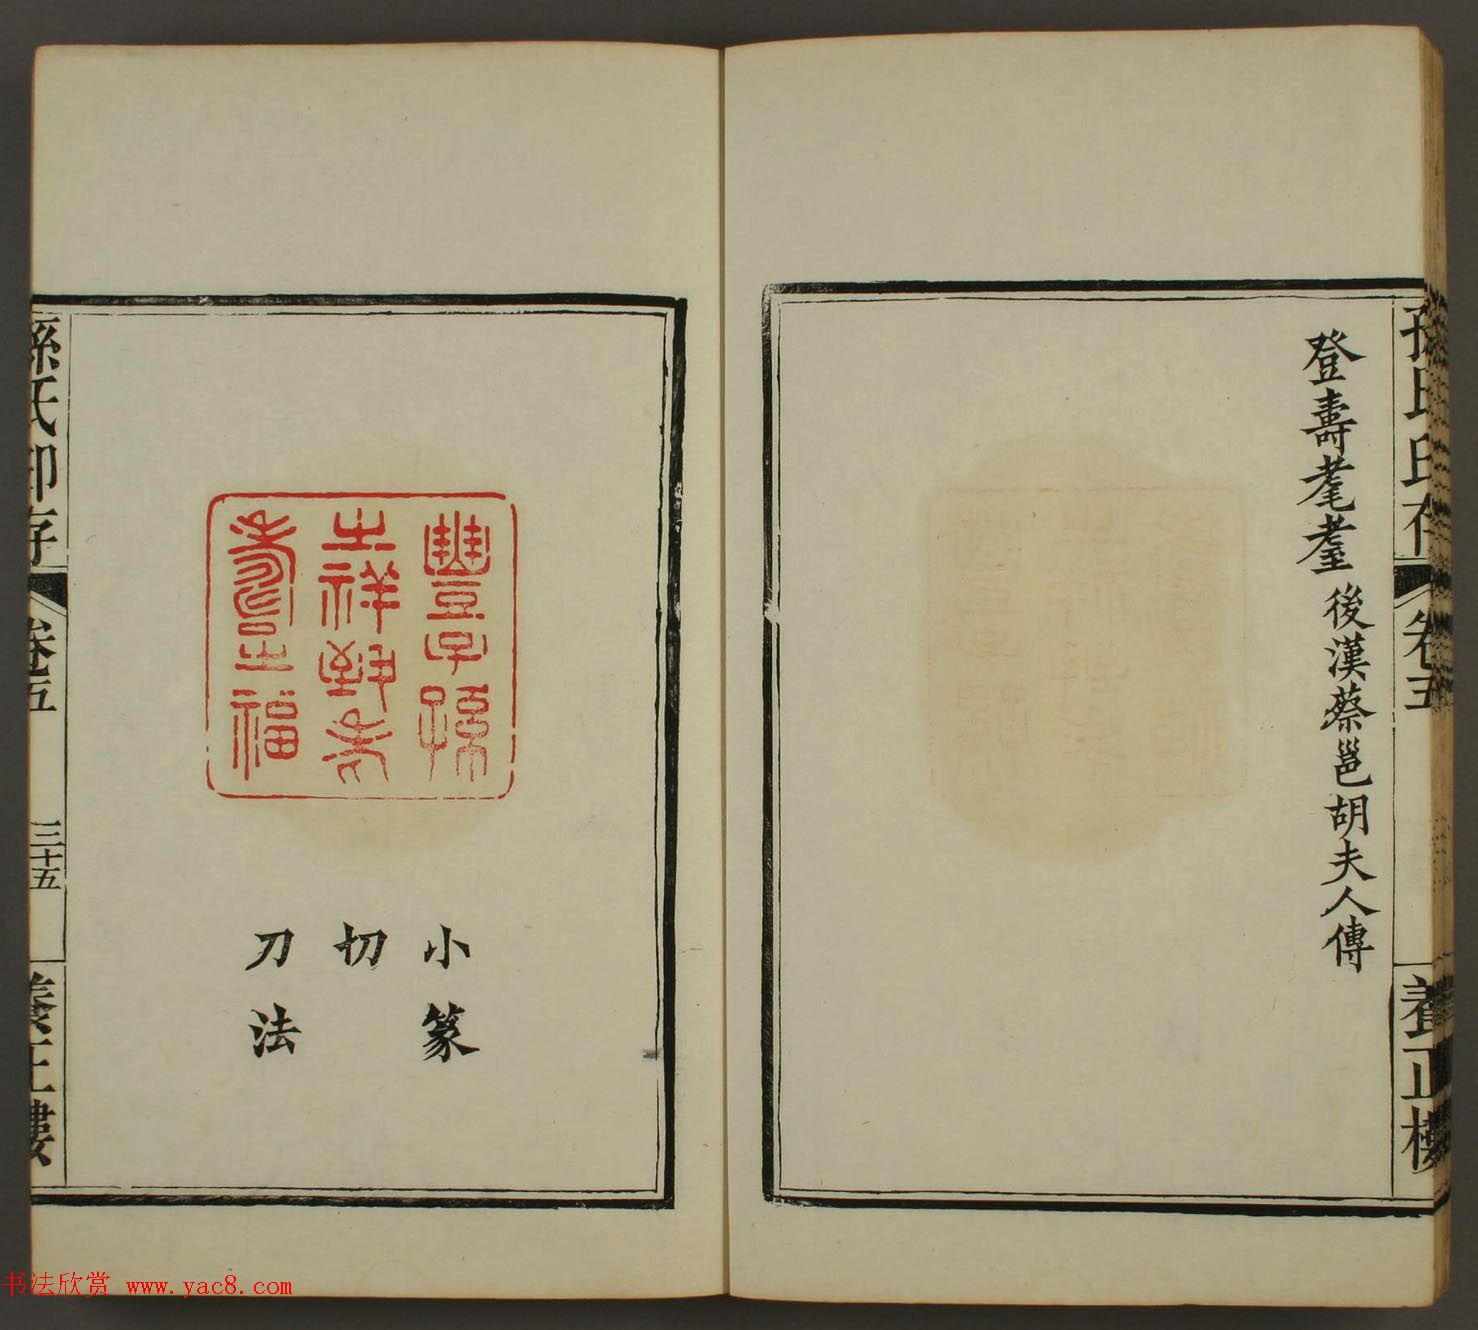 孫氏印存
卷五
養正樓
登壽耄耋 後漢蔡邕胡夫人傳
豐子孫
之祥致老
壽之福
小篆
切
刀法
孫氏印存
卷五
三十五
養正樓
书法欣赏 www.yac8.com